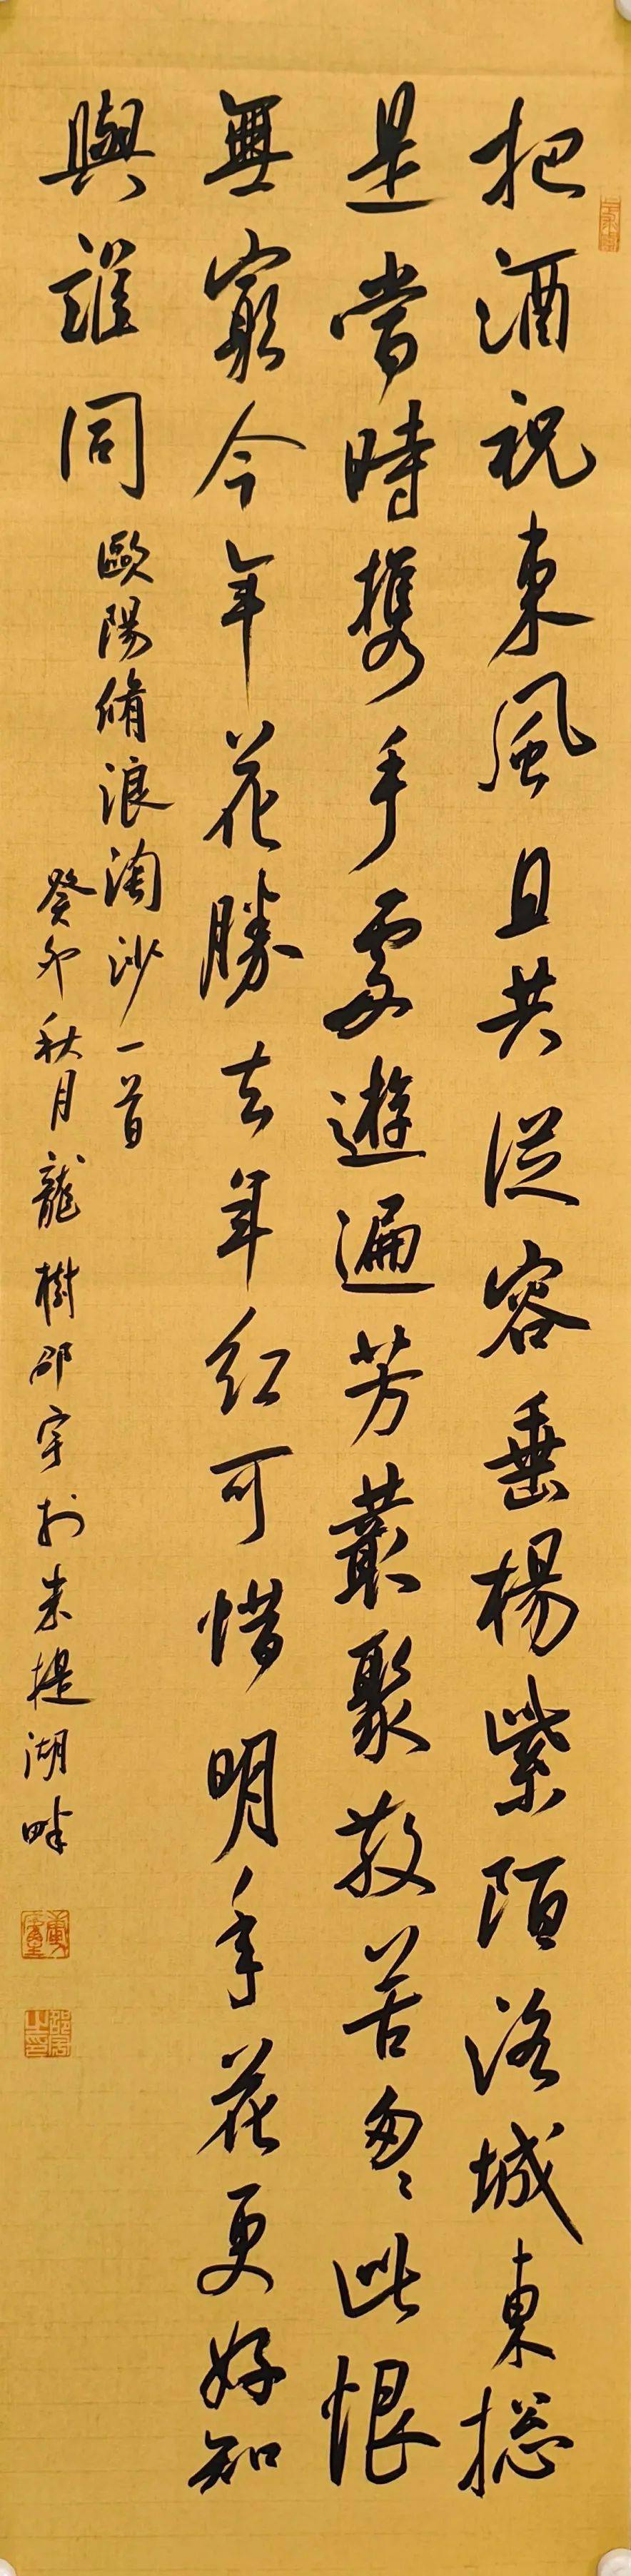 把酒祝東風且共從容垂楊紫陌洛城東揔
是當時携手處遊遍芳叢聚散苦匆〻此恨
無窮今年花勝去年紅可惜明年花更好知
與誰同
歐陽脩浪淘沙一首
癸卯秋月龍樹邵宇於朱提湖畔